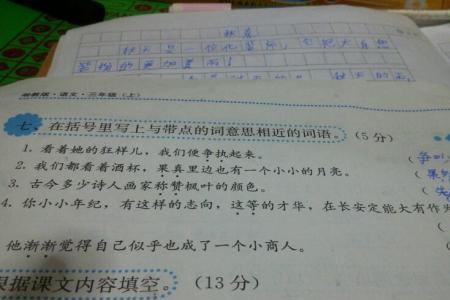 秋天
秋天是一位化妆师，它把大自然
装扮的更加美丽！
湘教版·语文·三年级（上）
七、在括号里写上与带点的词意思相近的词语。（5分）
1. 看着她的狂样儿，我们便争执起来。
（争叫
2. 我们都看着酒杯，果真里边也有一个小小的月亮。
（果然
3. 古今多少诗人画家称赞枫叶的颜色。
4. 你小小年纪，有这样的志向，这等的才华，在长安定能大有作为
他渐渐觉得自己似乎也成了一个小商人。
根据课文内容填空。（13分）